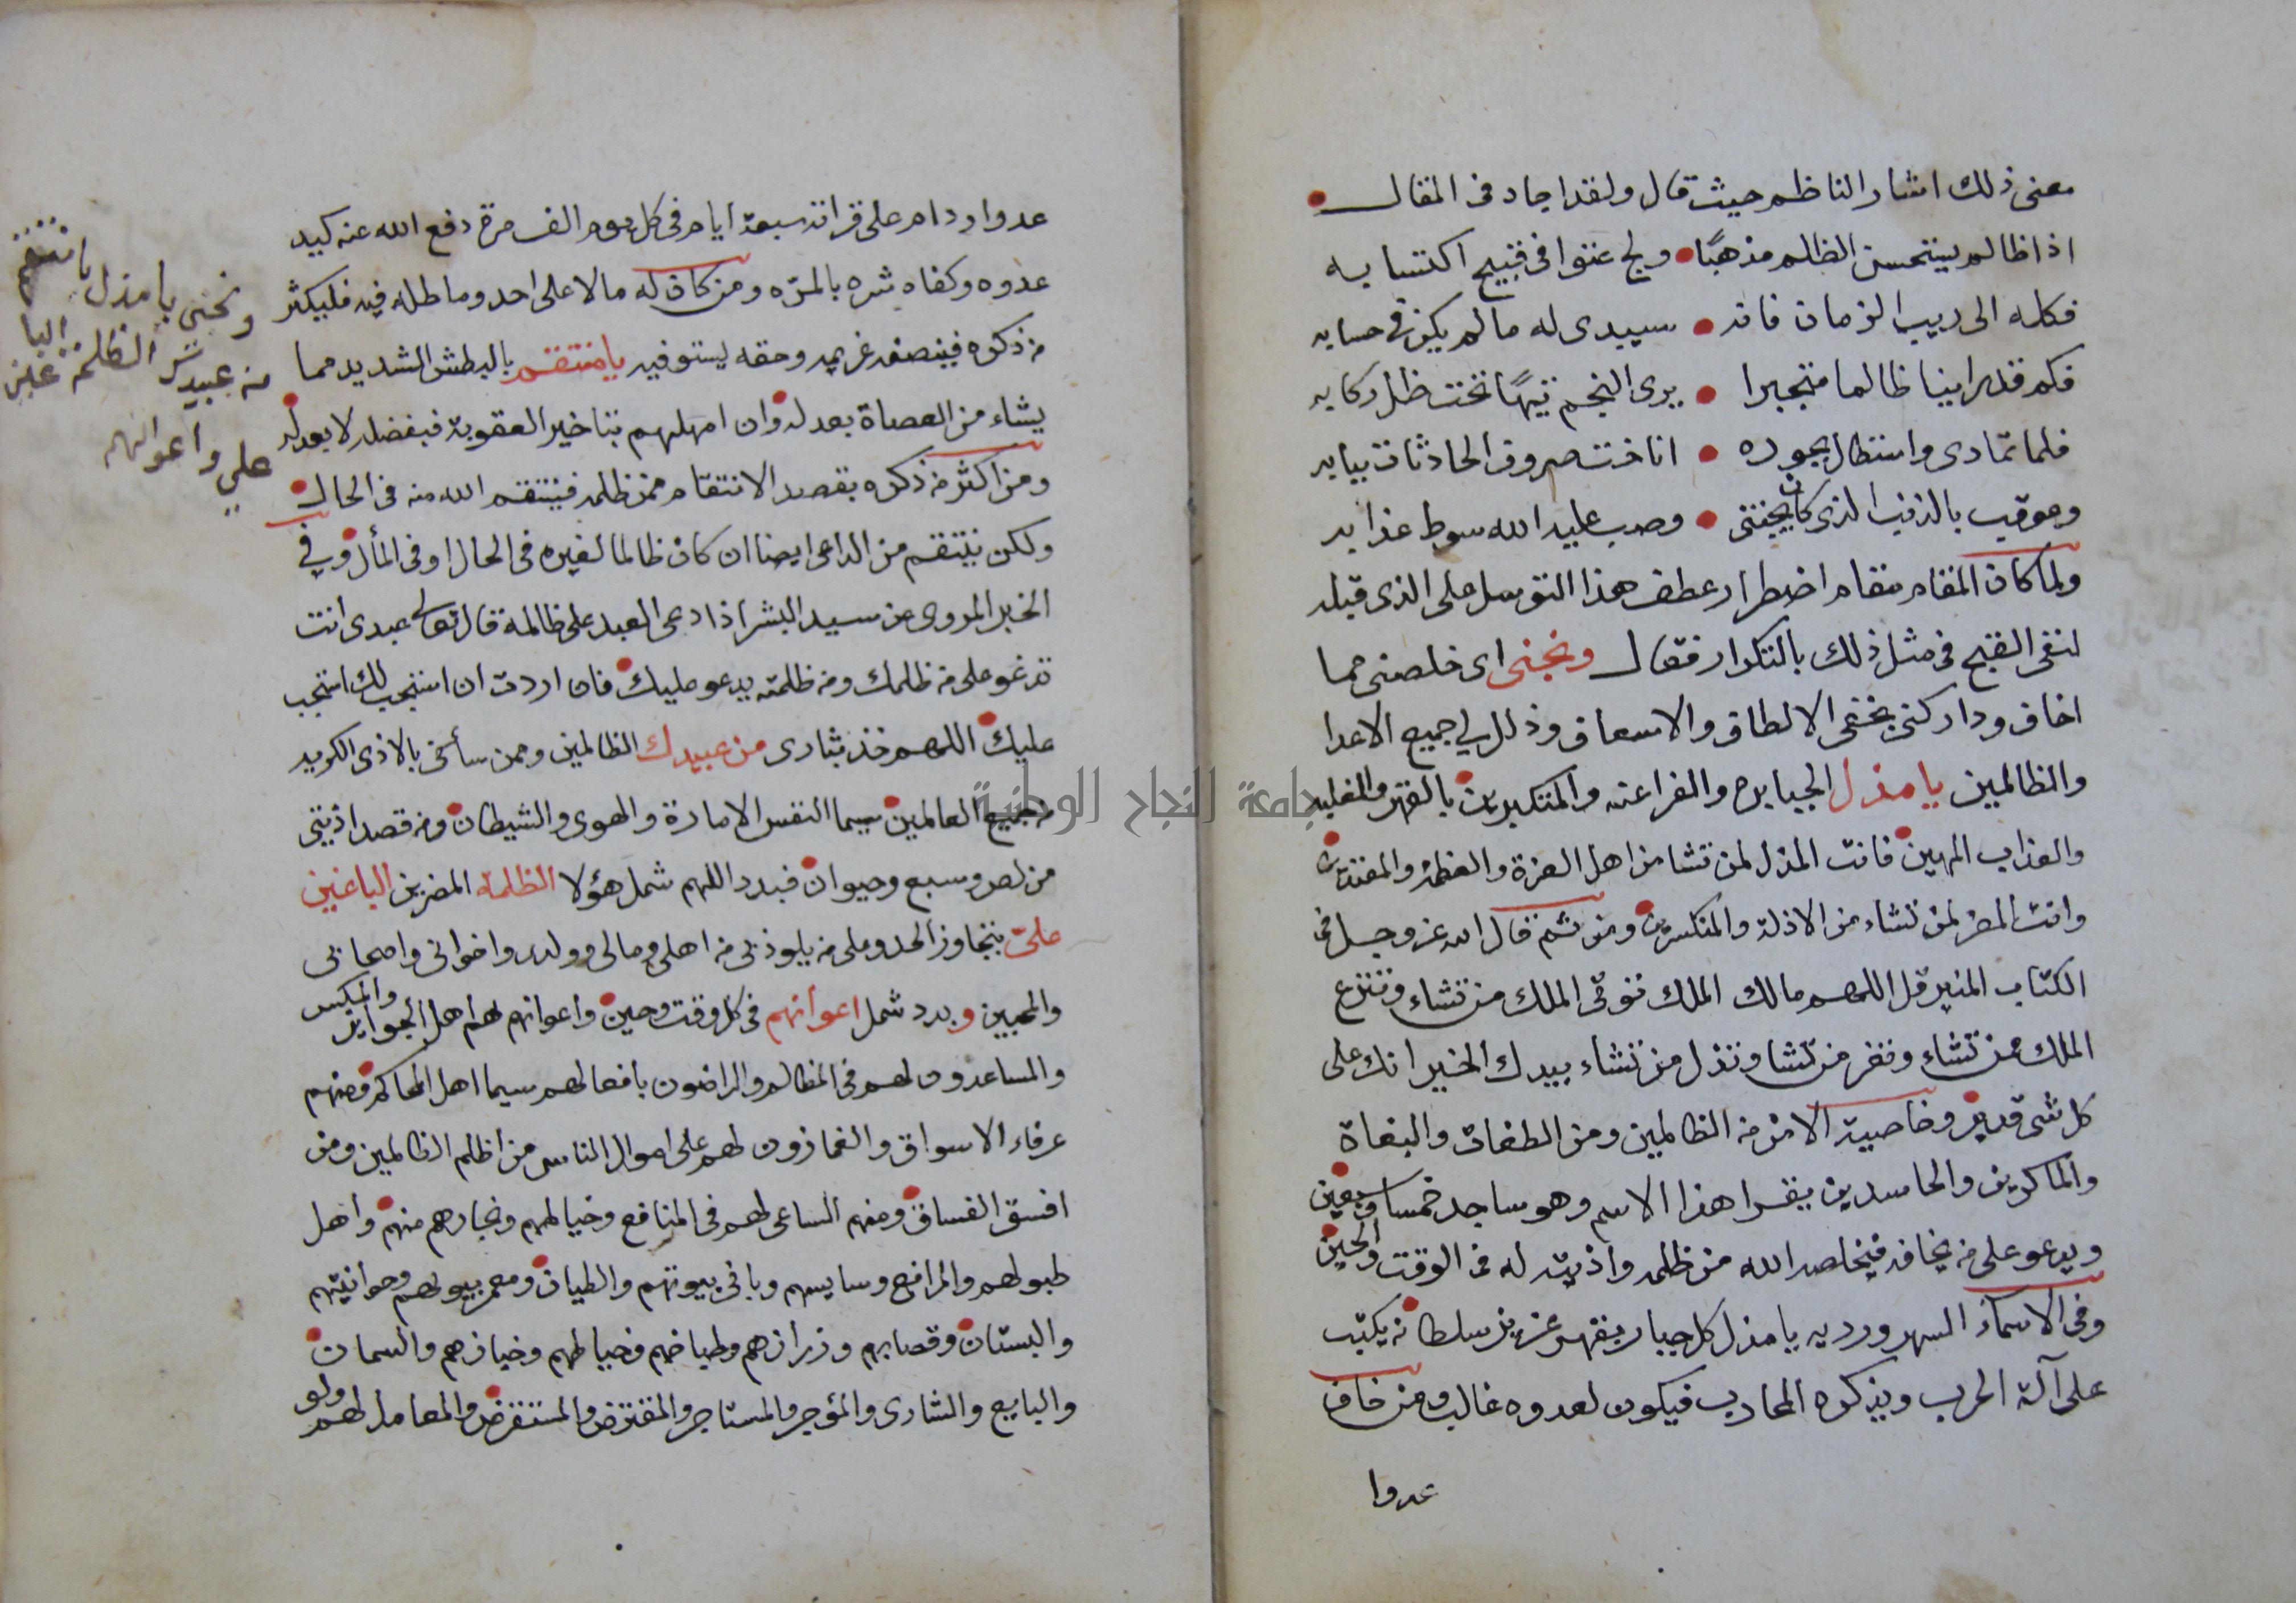 معنى ذلك اشار الناظم حيث قال ولقد اجاد فى المقال
اذا ظالم يستحسن الظلم مذهبًا ولج عتوا فى قبيح اكتسابه
فكله الى ريب الزمان فانه سيبدى له مالم يكن فى حسابه
فكم قد راينا ظالما متجبرا يرى النجم تيهًا تحت ظل ركابه
فلما تمادى واستطال بجوره اناخت صروف الحادثات ببابه
وعوقب بالذنب الذى كان يجتنى وصب عليه الله سوط عذابه
ولما كان المقام مقام اضطرار عطف هذا التوسل على الذى قبله
لنفى القبح فى مثل ذلك بالتكرار فقال ونجنى اى خلصنى مما
اخاف وداركنى بخفى الالطاف والاسعاف وذلل لي جميع الاعدا
والظالمين يا مذل الجبابره والفراعنه والمتكبرين بالقهر والغلبه
والعذاب المهين فانت المذل لمن تشا من اهل العزة والعظمة والمفتدين
وانت المعز لمن تشاء من الاذلة والمنكسرين ومن ثم قال الله عز وجل فى
الكتاب المنير قل اللهم مالك الملك توتى الملك من تشاء وتنزع
الملك ممن تشاء وتعز من تشا وتذل من تشاء بيدك الخير انك على
كل شى قدير وخاصيته الامن من الظالمين ومن الطغات والبغاة
والماكرين والحاسدين يقرا هذا الاسم وهو ساجد خمسا وسبعين
ويدعو على من يخافه فيخلصه الله من ظلمه واذيته له فى الوقت والحين
وفى الاسماء السهرورديه يا مذل كل جبار بقهر عزيز سلطانه يكتب
على آلة الحرب ويذكره المحارب فيكون لعدوه غالب ومن خاف
عدوا
عدوا وداوم على قراته سبعة ايام فى كل يوم الف مرة دفع الله عنه كيد
عدوه وكفاه شره بالمرّه ومن كان له مالا على احد وماطله فيه فليكثر
من ذكره فينصفه غريمه وحقه يستوفيه يا منتقم بالبطش الشديد مما
يشاء من العصاة بعدله وان امهلهم بتاخير العقوبة فبفضله لا بعدله
ومن اكثر من ذكره بقصد الانتقام ممن ظلمه فينتقم الله منه فى الحال
ولكن ينتقم من الداعى ايضا ان كان ظالما لغيره فى الحال او فى المأل وفي
الخبر المروى عن سيد البشر اذا دعى العبد على ظالمه قال تعالى عبدى انت
تدعو على من ظلمك ومن ظلمته يدعو عليك فان اردت ان استجب لك استجب
عليك اللهم خذ بثارى من عبيدك الظالمين وممن سأنى بالاذى الكريه
من جميع العالمين سيما النفس الامارة والهوى والشيطان ومن قصد اذيتى
من لص وسبع وحيوان فبدد اللهم شمل هؤلا الظلمه المضرين الباغين
علىّ بتجاوز الحد وعلى من يلوذ بى من اهلى ومالى وولدى واخوانى واصحابى
والمحبين وبدد شمل اعوانهم فى كل وقت وحين واعوانهم هم اهل الجواير والمكس
والمساعدون لهم فى المظالم والراضون بافعالهم سيما اهل المحاكم ومنهم
عرفاء الاسواق والغمازون لهم على اموال الناس من اظلم الظالمين ومن
افسق الفساق ومنهم الساعى لهم فى المنافع وخيالهم ونجارهم منهم واهل
طبولهم والمرافع وسايسهم وبانى بيوتهم والطيان ومعمر بيوتهم وحوانيتهم
والبستان وقصابهم وزرازهم وطباخهم وخيالهم وخبازهم والسمان
والبايع والشارى والمؤجر والمستاجر والمقترض والمستقرض والمعامل لهم ولو
ونجنى يا مذل يا منتقم
من عبيدك الظلمة الباغين
علي واعوانهم
جامعة النجاح الوطنية